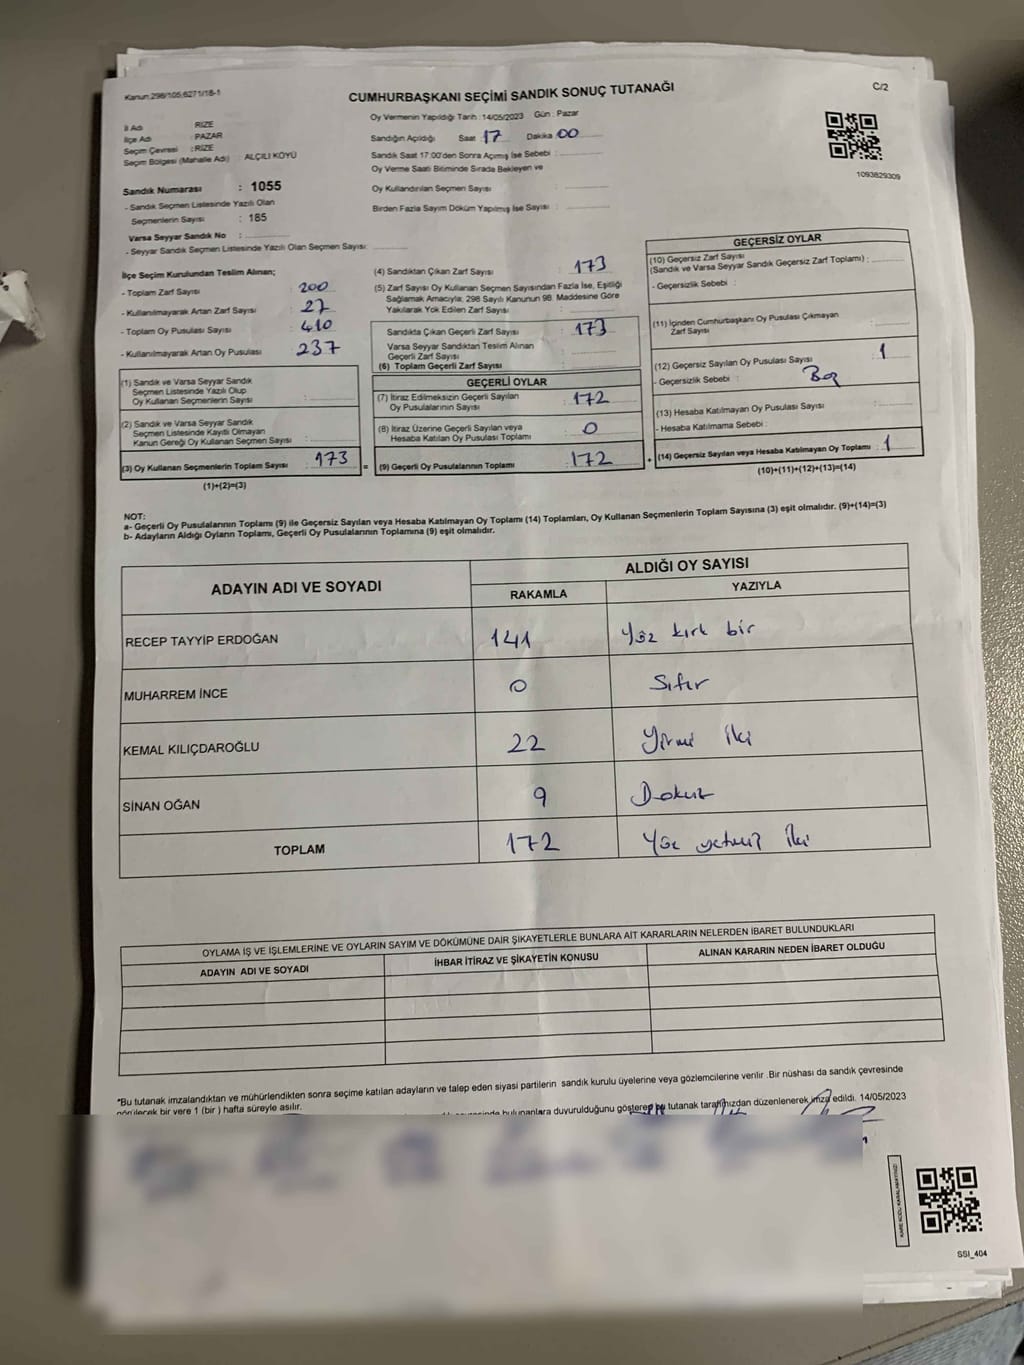 Kanun:298/105,6271/18-1
CUMHURBAŞKANI SEÇİMİ SANDIK SONUÇ TUTANAĞI
C/2
İl Adı : RİZE
İlçe Adı : PAZAR
Seçim Çevresi : RİZE
Seçim Bölgesi (Mahalle Adı) : ALÇILI KÖYÜ
Sandık Numarası : 1055
- Sandık Seçmen Listesinde Yazılı Olan
Seçmenlerin Sayısı : 185
Varsa Seyyar Sandık No :
- Seyyar Sandık Seçmen Listesinde Yazılı Olan Seçmen Sayısı:
Oy Vermenin Yapıldığı Tarih : 14/05/2023 Gün : Pazar
Sandığın Açıldığı Saat : 17 Dakika : 00
Sandık Saat 17:00'den Sonra Açımış İse Sebebi :
Oy Verme Saati Bitiminde Sırada Bekleyen ve
Oy Kullandırılan Seçmen Sayısı :
Birden Fazla Sayım Döküm Yapılmış İse Sayısı :
1093829309
İlçe Seçim Kurulundan Teslim Alınan;
- Toplam Zarf Sayısı : 200
- Kullanılmayarak Artan Zarf Sayısı : 27
- Toplam Oy Pusulası Sayısı : 410
- Kullanılmayarak Artan Oy Pusulası : 237
(1) Sandık ve Varsa Seyyar Sandık
Seçmen Listesinde Yazılı Olup
Oy Kullanan Seçmenlerin Sayısı :
(2) Sandık ve Varsa Seyyar Sandık
Seçmen Listesinde Kayıtlı Olmayan
Kanun Gereği Oy Kullanan Seçmen Sayısı :
(3) Oy Kullanan Seçmenlerin Toplam Sayısı : 173
(1)+(2)=(3)
(4) Sandıktan Çıkan Zarf Sayısı : 173
(5) Zarf Sayısı Oy Kullanan Seçmen Sayısından Fazla İse, Eşitliği
Sağlamak Amacıyla; 298 Sayılı Kanunun 98. Maddesine Göre
Yakılarak Yok Edilen Zarf Sayısı :
Sandıkta Çıkan Geçerli Zarf Sayısı : 173
Varsa Seyyar Sandıktan Teslim Alınan
Geçerli Zarf Sayısı :
(6) Toplam Geçerli Zarf Sayısı :
GEÇERLİ OYLAR
(7) İtiraz Edilmeksizin Geçerli Sayılan
Oy Pusulalarının Sayısı : 172
(8) İtiraz Üzerine Geçerli Sayılan veya
Hesaba Katılan Oy Pusulası Toplamı : 0
= (9) Geçerli Oy Pusulalarının Toplamı : 172
GEÇERSİZ OYLAR
(10) Geçersiz Zarf Sayısı
(Sandık ve Varsa Seyyar Sandık Geçersiz Zarf Toplamı) :
- Geçersizlik Sebebi :
(11) İçinden Cumhurbaşkanı Oy Pusulası Çıkmayan
Zarf Sayısı :
(12) Geçersiz Sayılan Oy Pusulası Sayısı : 1
- Geçersizlik Sebebi : Boş
(13) Hesaba Katılmayan Oy Pusulası Sayısı :
- Hesaba Katılmama Sebebi :
+ (14) Geçersiz Sayılan veya Hesaba Katılmayan Oy Toplamı : 1
(10)+(11)+(12)+(13)=(14)
NOT:
a- Geçerli Oy Pusulalarının Toplamı (9) ile Geçersiz Sayılan veya Hesaba Katılmayan Oy Toplamı (14) Toplamları, Oy Kullanan Seçmenlerin Toplam Sayısına (3) eşit olmalıdır. (9)+(14)=(3)
b- Adayların Aldığı Oyların Toplamı, Geçerli Oy Pusulalarının Toplamına (9) eşit olmalıdır.
ADAYIN ADI VE SOYADI ALDIĞI OY SAYISI
RAKAMLA YAZIYLA
RECEP TAYYİP ERDOĞAN 141 Yüz kırk bir
MUHARREM İNCE 0 Sıfır
KEMAL KILIÇDAROĞLU 22 Yirmi iki
SİNAN OĞAN 9 Dokuz
TOPLAM 172 Yüz yetmiş iki
OYLAMA İŞ VE İŞLEMLERİNE VE OYLARIN SAYIM VE DÖKÜMÜNE DAİR ŞİKAYETLERLE BUNLARA AİT KARARLARIN NELERDEN İBARET BULUNDUKLARI
ADAYIN ADI VE SOYADI İHBAR İTİRAZ VE ŞİKAYETİN KONUSU ALINAN KARARIN NEDEN İBARET OLDUĞU
*Bu tutanak imzalandıktan ve mühürlendikten sonra seçime katılan adayların ve talep eden siyasi partilerin sandık kurulu üyelerine veya gözlemcilerine verilir .Bir nüshası da sandık çevresinde
görülecek bir yere 1 (bir ) hafta süreyle asılır.
bulunanlara duyurulduğunu gösteren bu tutanak tarafımızdan düzenlenerek imza edildi. 14/05/2023
SSI_404